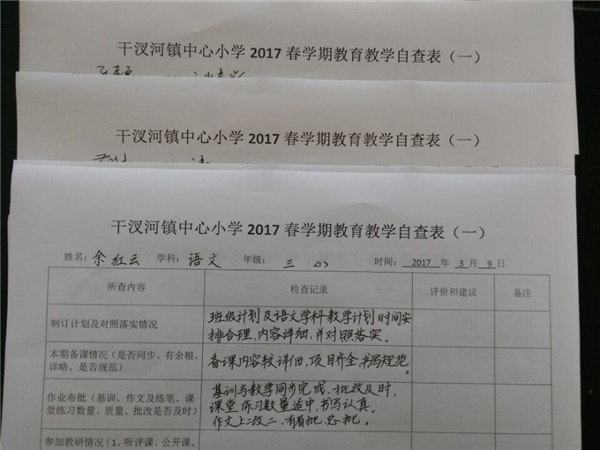 干汊河镇中心小学 2017 春学期教育教学自查表（一）
干汊河镇中心小学 2017 春学期教育教学自查表（一）
干汊河镇中心小学 2017 春学期教育教学自查表（一）
姓名：余红云 学科：语文 年级：三 时间：2017 年 3 月 9 日
所查内容 检查记录 评价和建议 备注
制订计划及对照落实情况
班级计划及语文学科教学计划时间安
排合理，内容详细，并对照落实。
本期备课情况（是否同步、有余粮、
详略、是否规范）
备课内容较详细，项目齐全，书写规范。
作业布批（基训、作文及练笔、课
堂练习数量、质量、批改是否及时）
基训与教学同步完成，批改及时，
课堂练习数量适中，书写认真。
作文上二改二，有眉批总批。
参加教研情况（1、听评课、公开课、